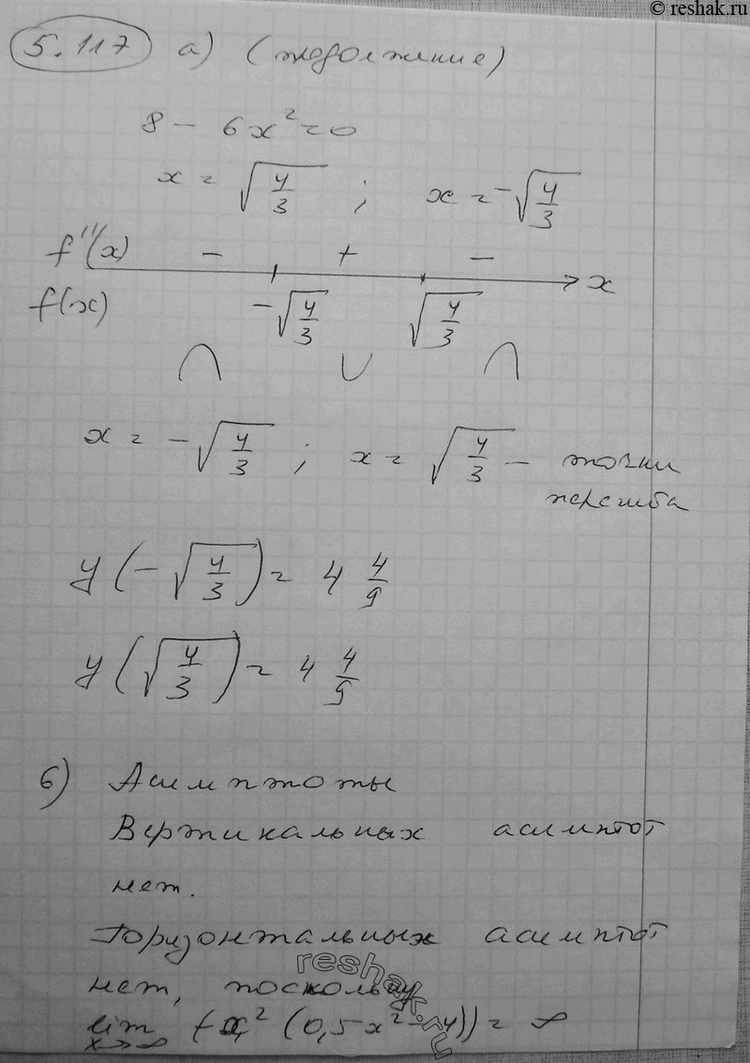 © reshak.ru
5.117 а) (продолжение)
8 - 6x² = 0
x = √(4/3) ; x = -√(4/3)
f''(x) - + -
x
f(x) -√(4/3) √(4/3)
∩ ∪ ∩
x = -√(4/3) ; x = √(4/3) - точки
перегиба
y(-√(4/3)) = 4 4/9
y(√(4/3)) = 4 4/9
6) Асимптоты
Вертикальных асимптот
нет.
Горизонтальных асимптот
нет, поскольку
lim x→∞ (-x² (0,5x² - 4)) = ∞
reshak.ru